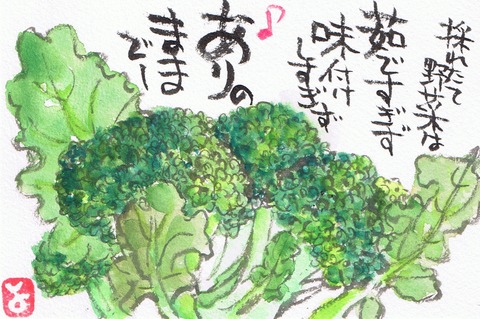 採れたて
野菜は
茹ですぎず
味付け
しすぎず
ありの
ままで
♪